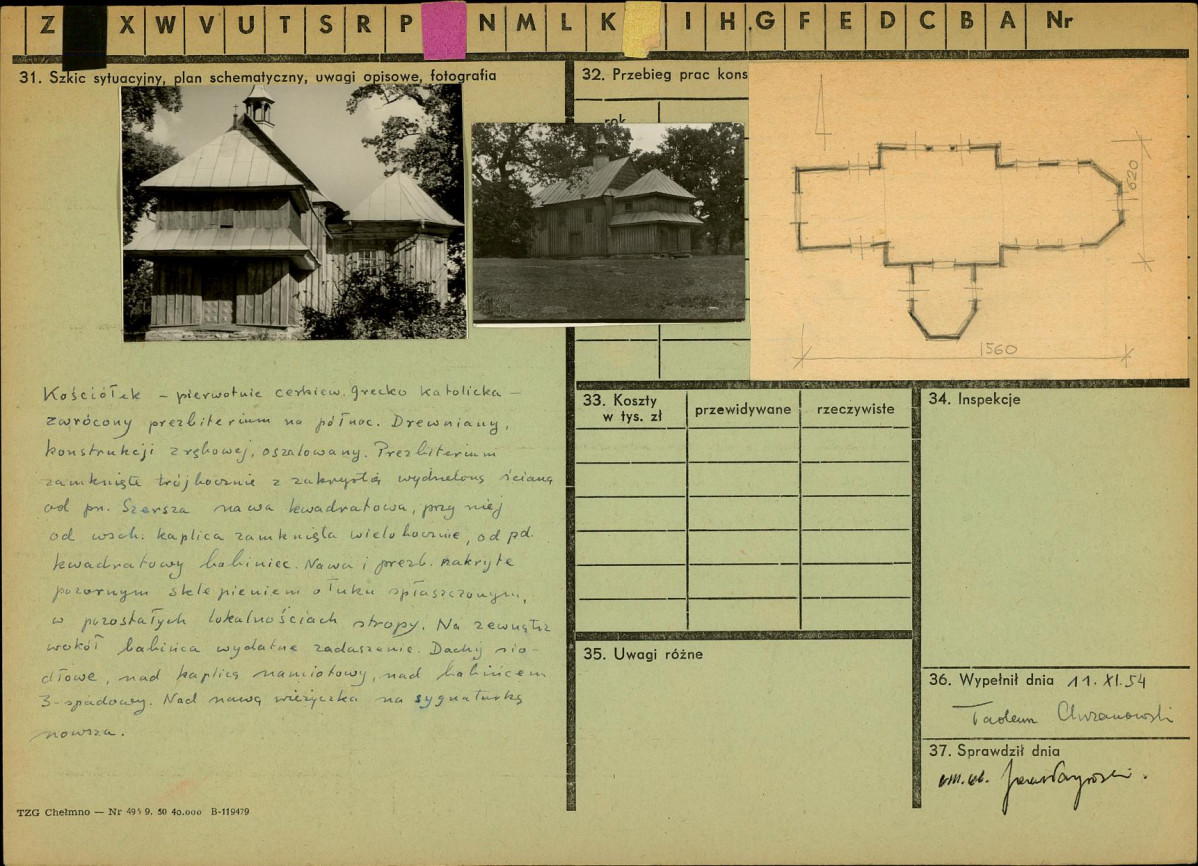 Z X W V U T S R P N M L K I H G F E D C B A Nr
31. Szkic sytuacyjny, plan schematyczny, uwagi opisowe, fotografia
32. Przebieg prac kons
rok
620
1560
Kościółek – pierwotnie cerkiew grecko katolicka –
zwrócony prezbiterium na północ. Drewniany,
konstrukcji zrębowej, oszalowany. Prezbiterium
zamknięte trójbocznie z zakrystią wydzieloną ścianą
od pn. Szersza nawa kwadratowa, przy niej
od wsch. kaplica zamknięta wielobocznie, od pd.
kwadratowy babiniec. Nawa i prezb. nakryte
pozornym sklepieniem o łuku spłaszczonym,
w pozostałych lokalnościach stropy. Na zewnątrz
wokół babińca wydatne zadaszenie. Dachy sio-
dłowe, nad kaplicą namiotowy, nad babińcem
3-spadowy. Nad nawą wieżyczka na sygnaturkę
nowsza.
33. Koszty
w tys. zł
przewidywane
rzeczywiste
34. Inspekcje
35. Uwagi różne
36. Wypełnił dnia 11. XI. 54
Tadeusz Chrzanowski
37. Sprawdził dnia
TZG Chełmno — Nr 495 9. 50 40.000 B-119479